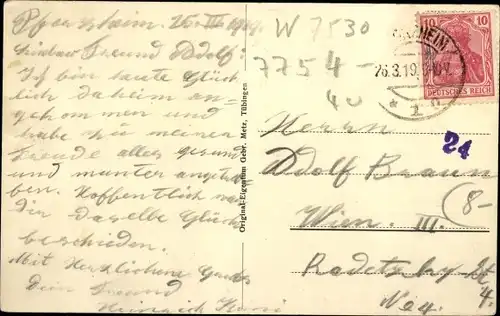 Pforzheim, 25. III. 19
Lieber Freund Adolf!
Ich bin heute Glück
lich daheim an-
gekommen und
habe zu meiner
Freude alles gesund
und munter angetrof
ben. Hoffentlich
Dir dasselbe Glück
beschieden.
Mit Herzlichem Gruß
Dein Freund
Heinrich
Original-Eigentum Gebr. Metz, Tübingen
W 7530
7754-
40
10 10
DEUTSCHES REICH
26.3.19.
* 2
Herrn
Adolf Braun
24
(8-
Wien. III.
Radetzky St
4.